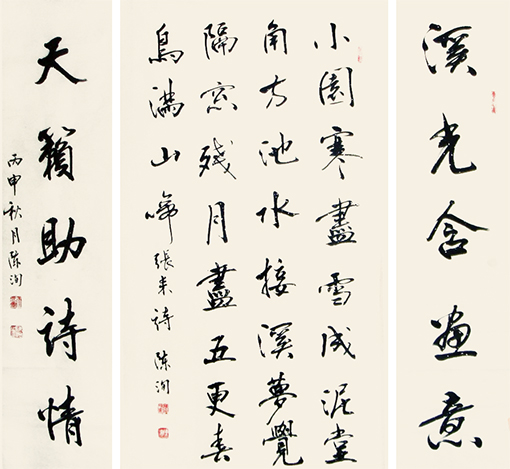 溪光含畫意
小園寒盡雪成泥堂
角方池水接溪夢覺
隔窓殘月盡五更春
鳥滿山啼 張耒詩 陳洵
天籟助詩情
丙申秋月陳洵